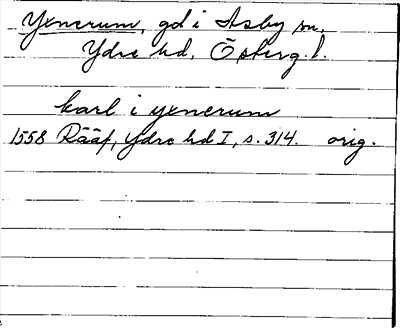 Yxnerum, gd i Asby sn,
Ydre hd, Österg. l.
karl i yxnerum
1558 Rääf, Ydre hd I, s. 314. orig.